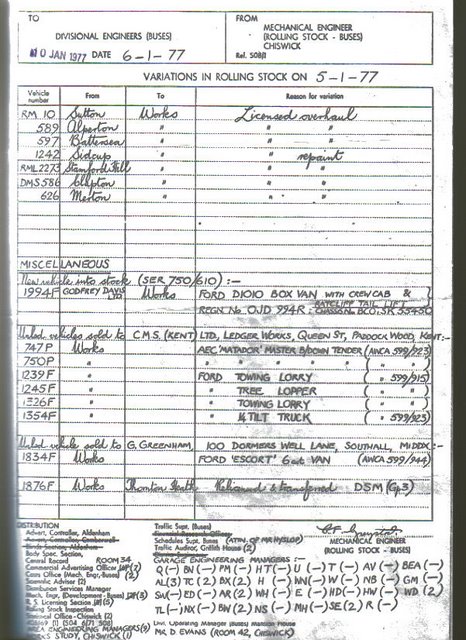 TO
DIVISIONAL ENGINEERS (BUSES)
10 JAN 1977 DATE 6-1-77
FROM
MECHANICAL ENGINEER
(ROLLING STOCK - BUSES)
CHISWICK
Ref. 508/1
VARIATIONS IN ROLLING STOCK ON 5-1-77
Vehicle number From To Reason for variation
RM 10 Sutton Works Licensed overhaul
589 Alperton " " "
597 Battersea " " "
1242 Sidcup " " repaint
RML2273 Stamford Hill " " "
DMS586 Clapton " " "
626 Merton " " "
MISCELLANEOUS
New vehicle into stock (SER 750/610) :-
1994F GODFREY DAVIS LTD Works FORD D1010 BOX VAN WITH CREW CAB &
RATCLIFF TAIL LIFT
REGN. No OJD 994R : CHASSIS No BCO.SR 55450
Unlsd vehicles sold to C.M.S. (KENT) LTD, LEDGER WORKS, QUEEN ST, PADDOCK WOOD, KENT:-
747P Works AEC 'MATADOR' MASTER B/DOWN TENDER (AWCA 599/923)
750P " " " " " ( " " )
1239F " FORD TOWING LORRY ( " 599/915)
1245F " " TREE LOPPER ( " " )
1326F " " TOWING LORRY ( " " )
1354F " " ¼ TILT TRUCK ( " 599/923)
Unlsd vehicle sold to G. GREENHAM, 100 DORMERS WELL LANE, SOUTHALL, MIDDX :-
1834F Works FORD 'ESCORT' 6cwt VAN (AWCA 599/944)
1876F Works Thornton Heath Relicensed & transferred DSM (Gp3)
DISTRIBUTION
Advert. Controller, Aldenham
Body Spec. Section,
Central Record ROOM 34
Commercial Advertising Officer (7)
Costs Office (Mech. Engr. Buses) (2)
Scientific Adviser (2)
Distribution Services Manager
Mech. Engr. (Development - Buses) (3)
R. S. Licensing Section (5)
Rolling Stock Inspection
Traffic Supt. (Buses)
Schedules Supt. Buses (ATTN. OF MR HYSLOP)
Traffic Auditor, Griffith House (2)
MECHANICAL ENGINEER
(ROLLING STOCK - BUSES)
GARAGE ENGINEERING MANAGERS :-
Q(-) BN(-) PM(-) HT(-) U(-) T(-) AV(-) BEA(-)
AL(3) TC(2) BX(2) H(-) WN(-) W(-) NB(-) GM(-)
SW(-) ED(-) AR(2) WH(-) E(-) HD(-) HW(-) WD(2)
TL(-) NX(-) BW(2) NS(-) MH(-) SE(2) R(-)
AREA ENGINEERING MANAGERS (9)
WORKS STUDY, CHISWICK (1)
Divl. Operating Manager (Buses) Mansion House
Mr. D EVANS (ROOM 42, CHISWICK)